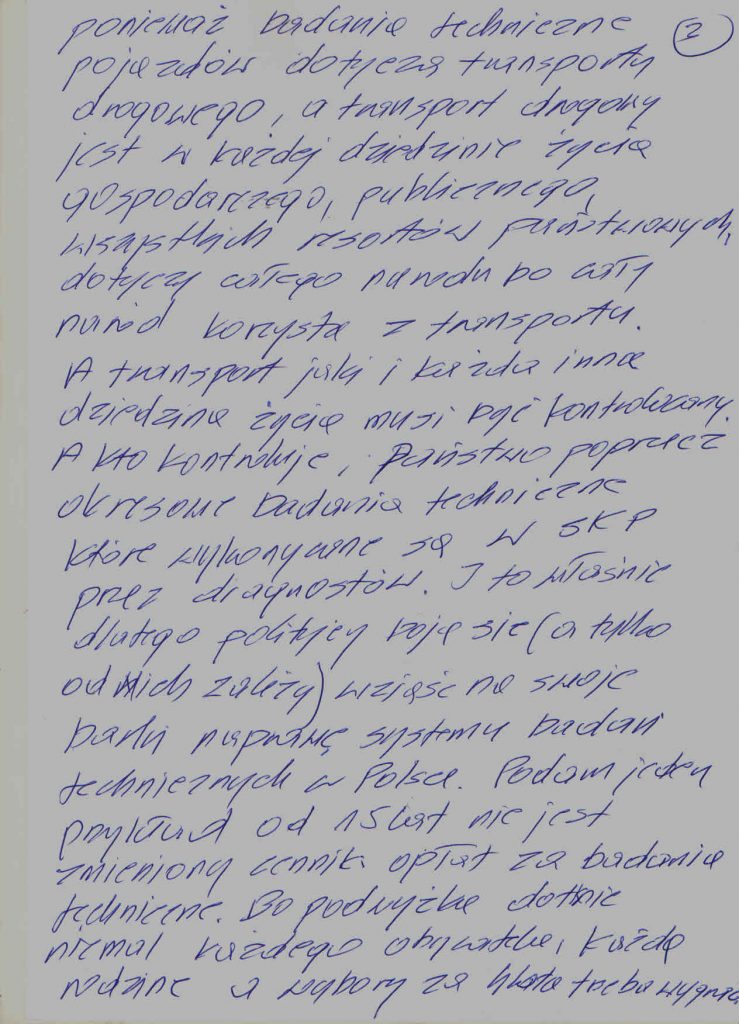 ponieważ badania techniczne
2
pojazdów dotyczą transportu
drogowego, a transport drogowy
jest w każdej dziedzinie życia
gospodarczego, publicznego,
wszystkich resortów państwowych,
dotyczy całego narodu bo cały
naród korzysta z transportu.
A transport jak i każda inna
dziedzina życia musi być kontrolowany.
A kto kontroluje, Państwo poprzez
okresowe badania techniczne
które wykonywane są w SKP
przez diagnostów. I to właśnie
dlatego politycy boją się (a tylko
od nich zależy) wziąść na swoje
barki naprawę systemu badań
technicznych w Polsce. Podam jeden
przykład od 15 lat nie jest
zmieniony cennik opłat za badania
techniczne. Bo podwyżka dotknie
niemal każdego obywatela, każdą
rodzinę a wybory za 4 lata trzeba